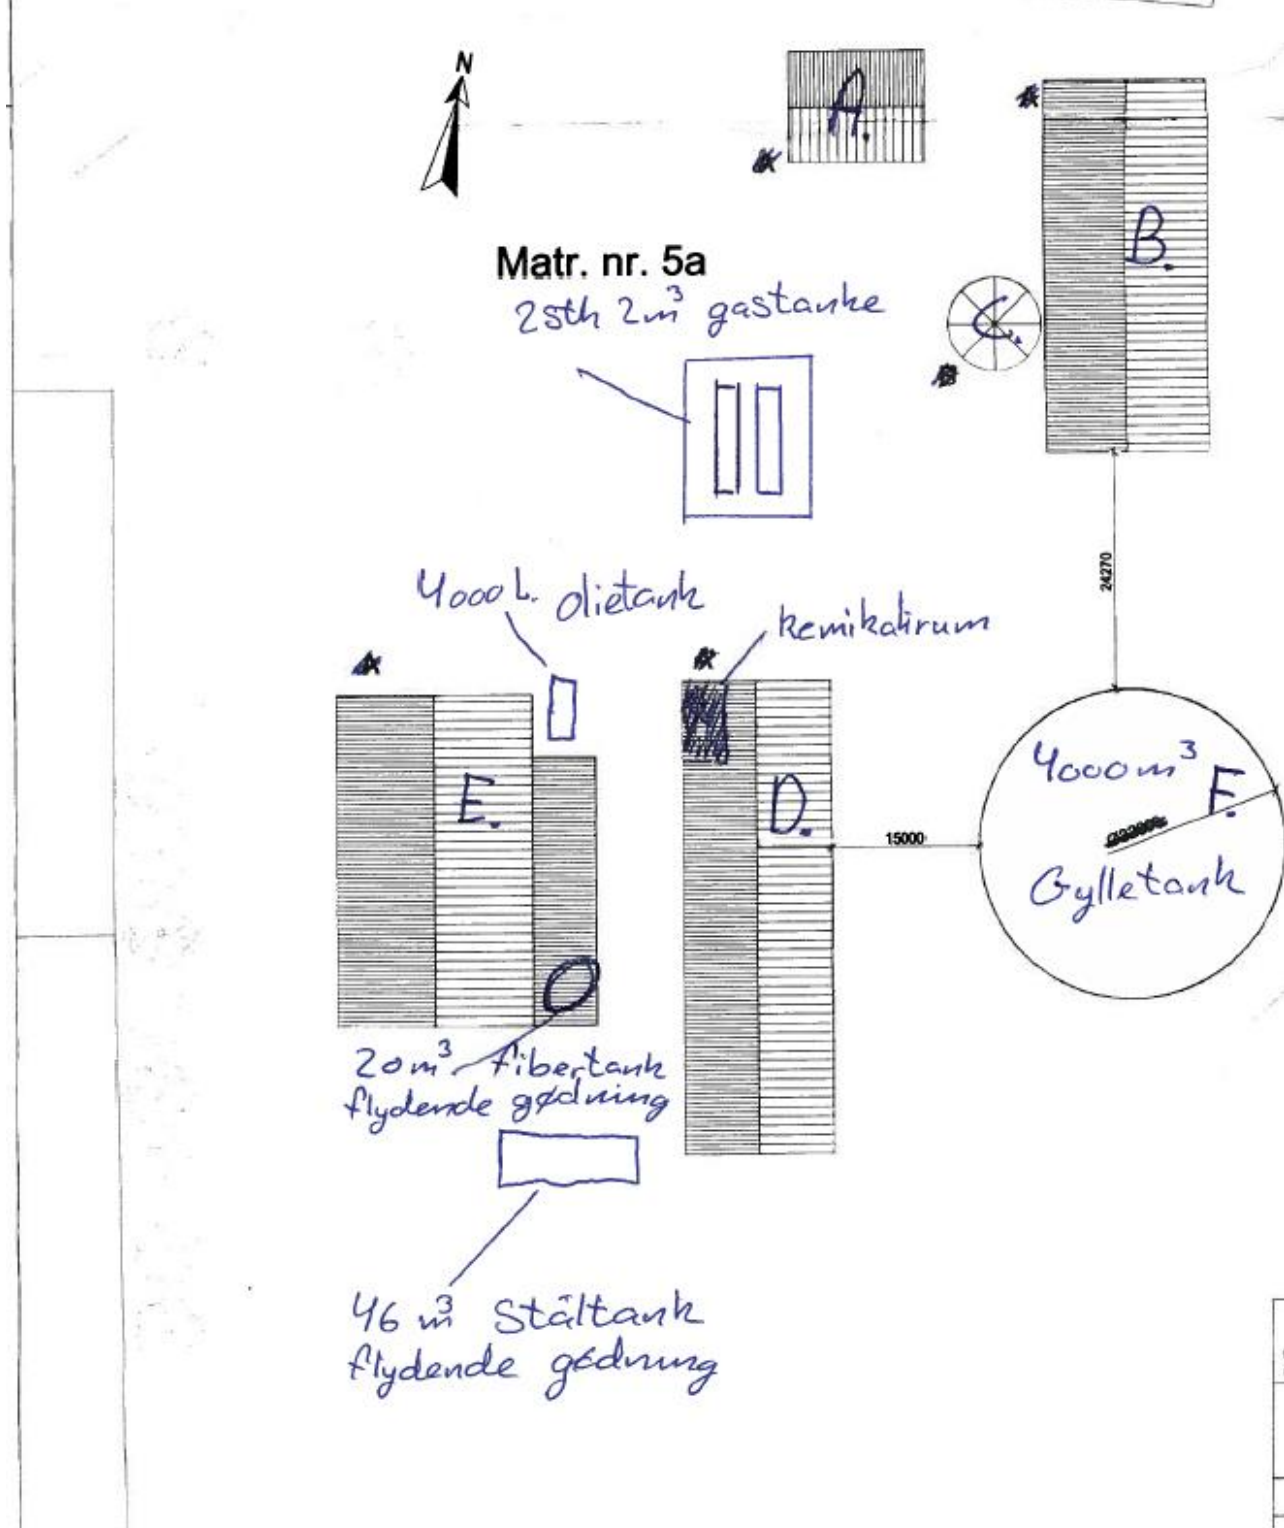 N
A.
B.
Matr. nr. 5a
2stk 2m³ gastanke
C.
24270
4000 L. olietank
kemikalirum
E.
D.
15000
4000m³ F.
Gylletank
20m³ fibertank
flydende gødning
46 m³ Ståltank
flydende gødning